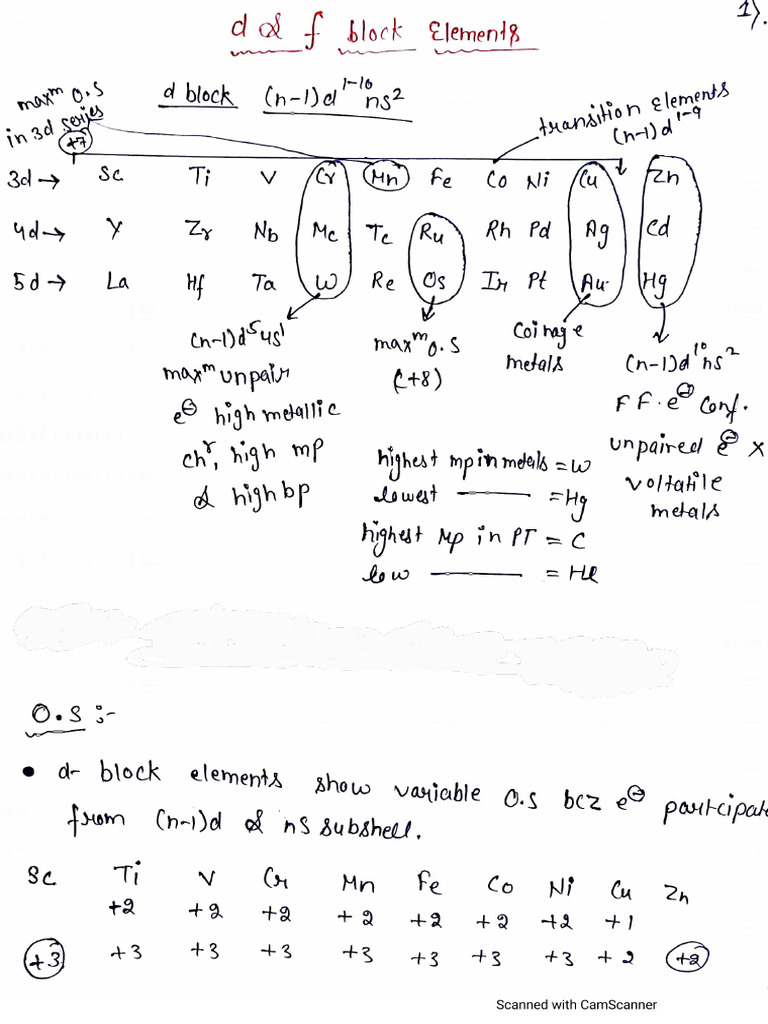 1).
d & f block Elements
maxᵐ O.S
in 3d series
+7
d block (n-1)d¹⁻¹⁰ns²
transition Elements
(n-1)d¹⁻⁹
3d→ Sc Ti V Cr Mn Fe Co Ni Cu Zn
4d→ Y Zr Nb Mc Tc Ru Rh Pd Ag Cd
5d→ La Hf Ta W Re Os Ir Pt Au Hg
(n-1)d⁵4s¹
maxᵐ unpair
e⊖ high metallic
chʳ, high mp
& high bp
maxᵐ O.S
(+8)
Coinage
metals
(n-1)d¹⁰ns²
FF.e⊖ Conf.
unpaired e⊖ x
voltatile
metals
highest mp in metals = W
lowest —— = Hg
highest Mp in PT = C
low —— = He
O.S :-
• d- block elements show variable O.S bcz e⊖ participate
from (n-1)d & ns subshell.
Sc Ti V Cr Mn Fe Co Ni Cu Zn
+2 +2 +2 +2 +2 +2 +2 +1
+3 +3 +3 +3 +3 +3 +3 +3 +2 +2
Scanned with CamScanner